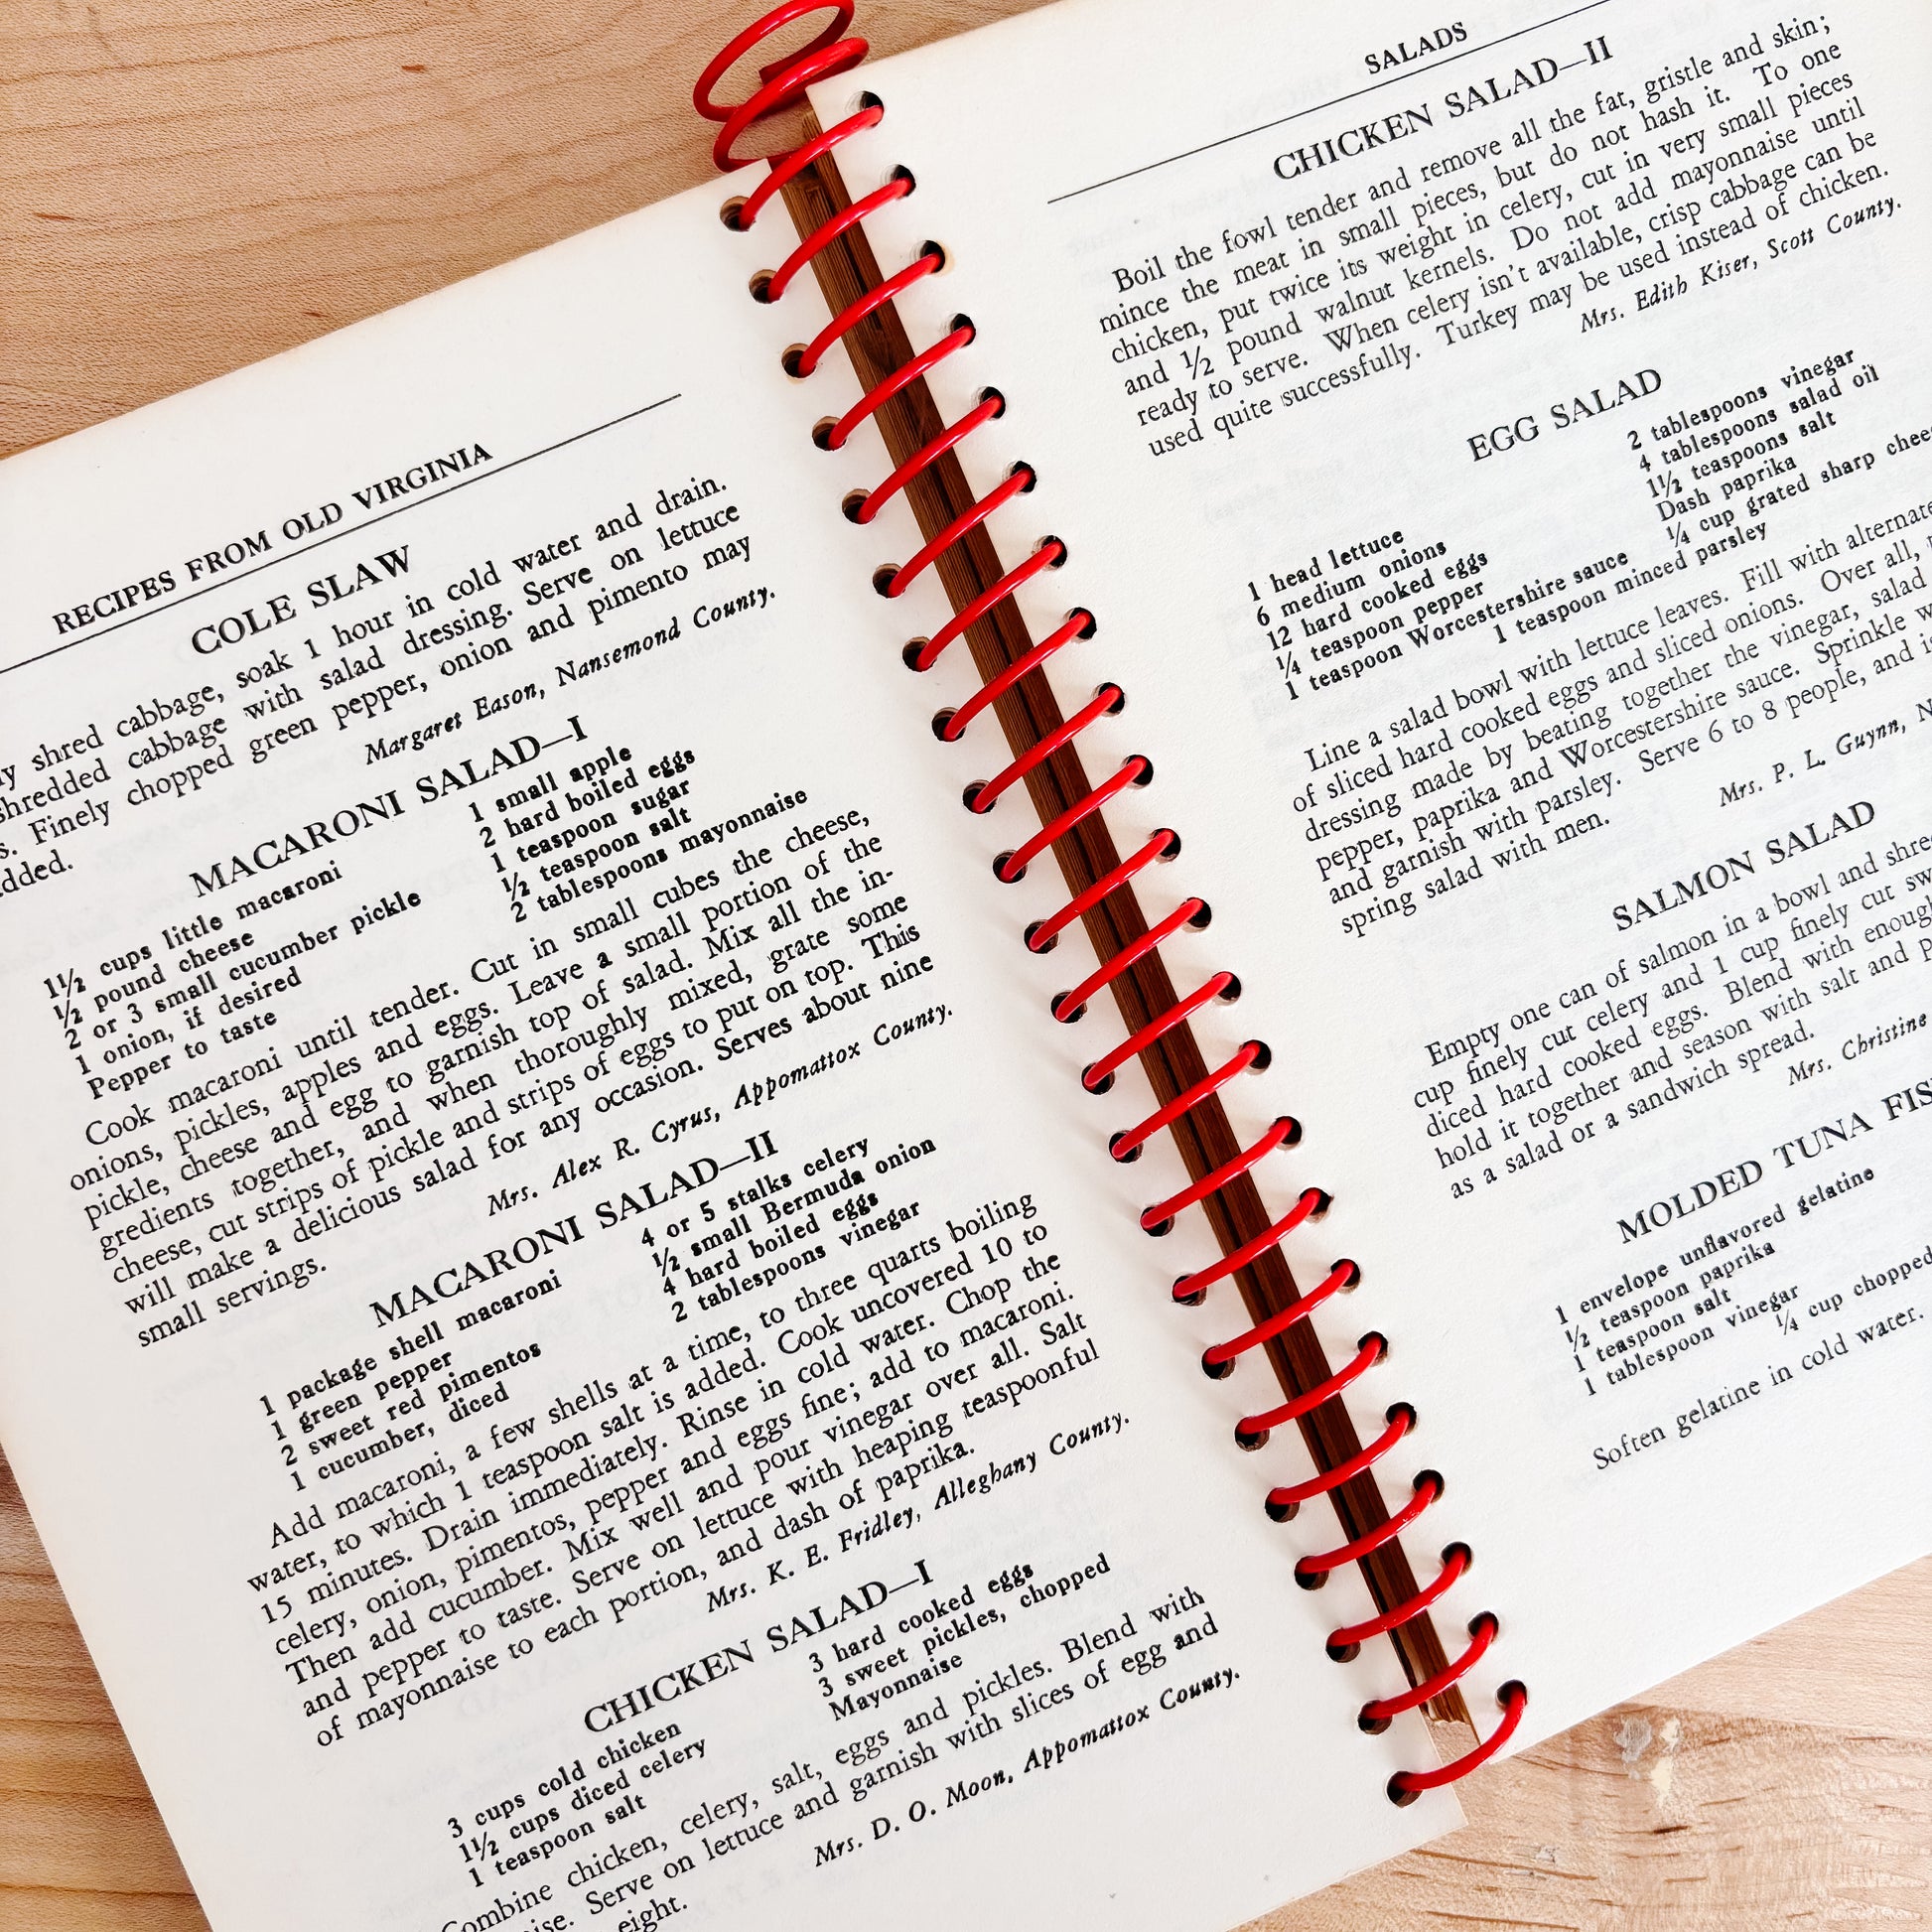 RECIPES FROM OLD VIRGINIA
COLE SLAW
shred cabbage, soak 1 hour in cold water and drain.
shredded cabbage with salad dressing. Serve on lettuce
Finely chopped green pepper, onion and pimento may
Margaret Eason, Nansemond County.
MACARONI SALAD—I
1½ cups little macaroni
½ pound cheese
2 or 3 small cucumber pickle
1 onion, if desired
Pepper to taste
1 small apple
2 hard boiled eggs
1 teaspoon sugar
½ teaspoon salt
2 tablespoons mayonnaise
Cook macaroni until tender. Cut in small cubes the cheese,
onions, pickles, apples and eggs. Leave a small portion of the
pickle, cheese and egg to garnish top of salad. Mix all the in-
gredients together, and when thoroughly mixed, grate some
cheese, cut strips of pickle and strips of eggs to put on top. This
will make a delicious salad for any occasion. Serves about nine
small servings.
Mrs. Alex R. Cyrus, Appomattox County.
MACARONI SALAD—II
1 package shell macaroni
1 green pepper
2 sweet red pimentos
1 cucumber, diced
4 or 5 stalks celery
½ small Bermuda onion
4 hard boiled eggs
2 tablespoons vinegar
Add macaroni, a few shells at a time, to three quarts boiling
water, to which 1 teaspoon salt is added. Cook uncovered 10 to
15 minutes. Drain immediately. Rinse in cold water. Chop the
celery, onion, pimentos, pepper and eggs fine; add to macaroni.
Then add cucumber. Mix well and pour vinegar over all. Salt
and pepper to taste. Serve on lettuce with heaping teaspoonful
of mayonnaise to each portion, and dash of paprika.
Mrs. K. E. Fridley, Alleghany County.
CHICKEN SALAD—I
3 cups cold chicken
1½ cups diced celery
1 teaspoon salt
3 hard cooked eggs
3 sweet pickles, chopped
Mayonnaise
Combine chicken, celery, salt, eggs and pickles. Blend with
Serve on lettuce and garnish with slices of egg and
eight.
Mrs. D. O. Moon, Appomattox County.
SALADS
CHICKEN SALAD—II
Boil the fowl tender and remove all the fat, gristle and skin;
mince the meat in small pieces, but do not hash it. To one
chicken, put twice its weight in celery, cut in very small pieces
and ½ pound walnut kernels. Do not add mayonnaise until
ready to serve. When celery isn't available, crisp cabbage can be
used quite successfully. Turkey may be used instead of chicken.
Mrs. Edith Kiser, Scott County.
EGG SALAD
1 head lettuce
6 medium onions
12 hard cooked eggs
¼ teaspoon pepper
1 teaspoon Worcestershire sauce
2 tablespoons vinegar
4 tablespoons salad oil
1½ teaspoons salt
Dash paprika
¼ cup grated sharp
1 teaspoon minced parsley
Line a salad bowl with lettuce leaves. Fill with alternate
of sliced hard cooked eggs and sliced onions. Over all,
dressing made by beating together the vinegar, salad
pepper, paprika and Worcestershire sauce. Sprinkle
and garnish with parsley. Serve 6 to 8 people, and
spring salad with men.
Mrs. P. L. Guynn,
SALMON SALAD
Empty one can of salmon in a bowl and
cup finely cut celery and 1 cup finely cut
diced hard cooked eggs. Blend with
hold it together and season with salt and
as a salad or a sandwich spread.
Mrs. Christine
MOLDED TUNA
1 envelope unflavored gelatine
½ teaspoon paprika
1 teaspoon salt
1 tablespoon vinegar
¼ cup chopped
Soften gelatine in cold water.